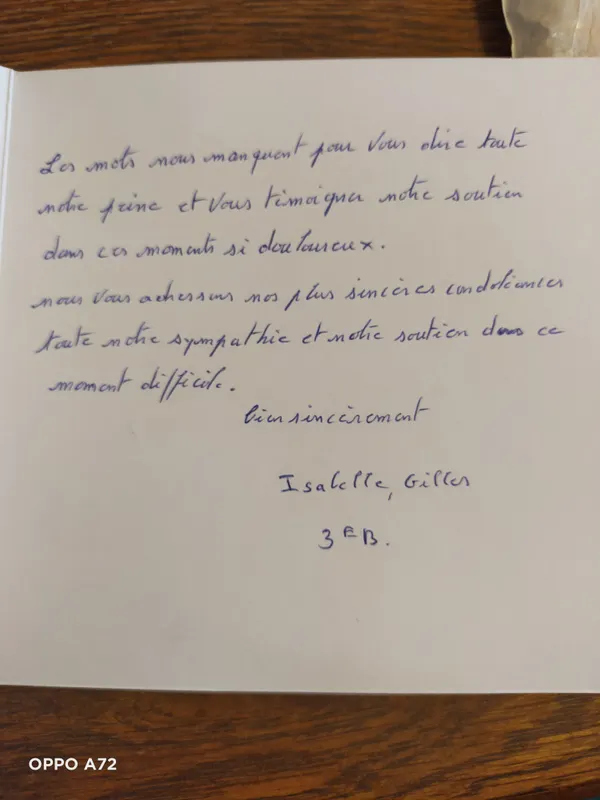 Les mots nous manquent pour vous dire toute
notre peine et vous témoigner notre soutien
dans ces moments si douloureux.
nous vous adressons nos plus sincères condoléances
toute notre sympathie et notre soutien dans ce
moment difficile.
bien sincèrement
Isabelle, Gilles
3EB.
OPPO A72